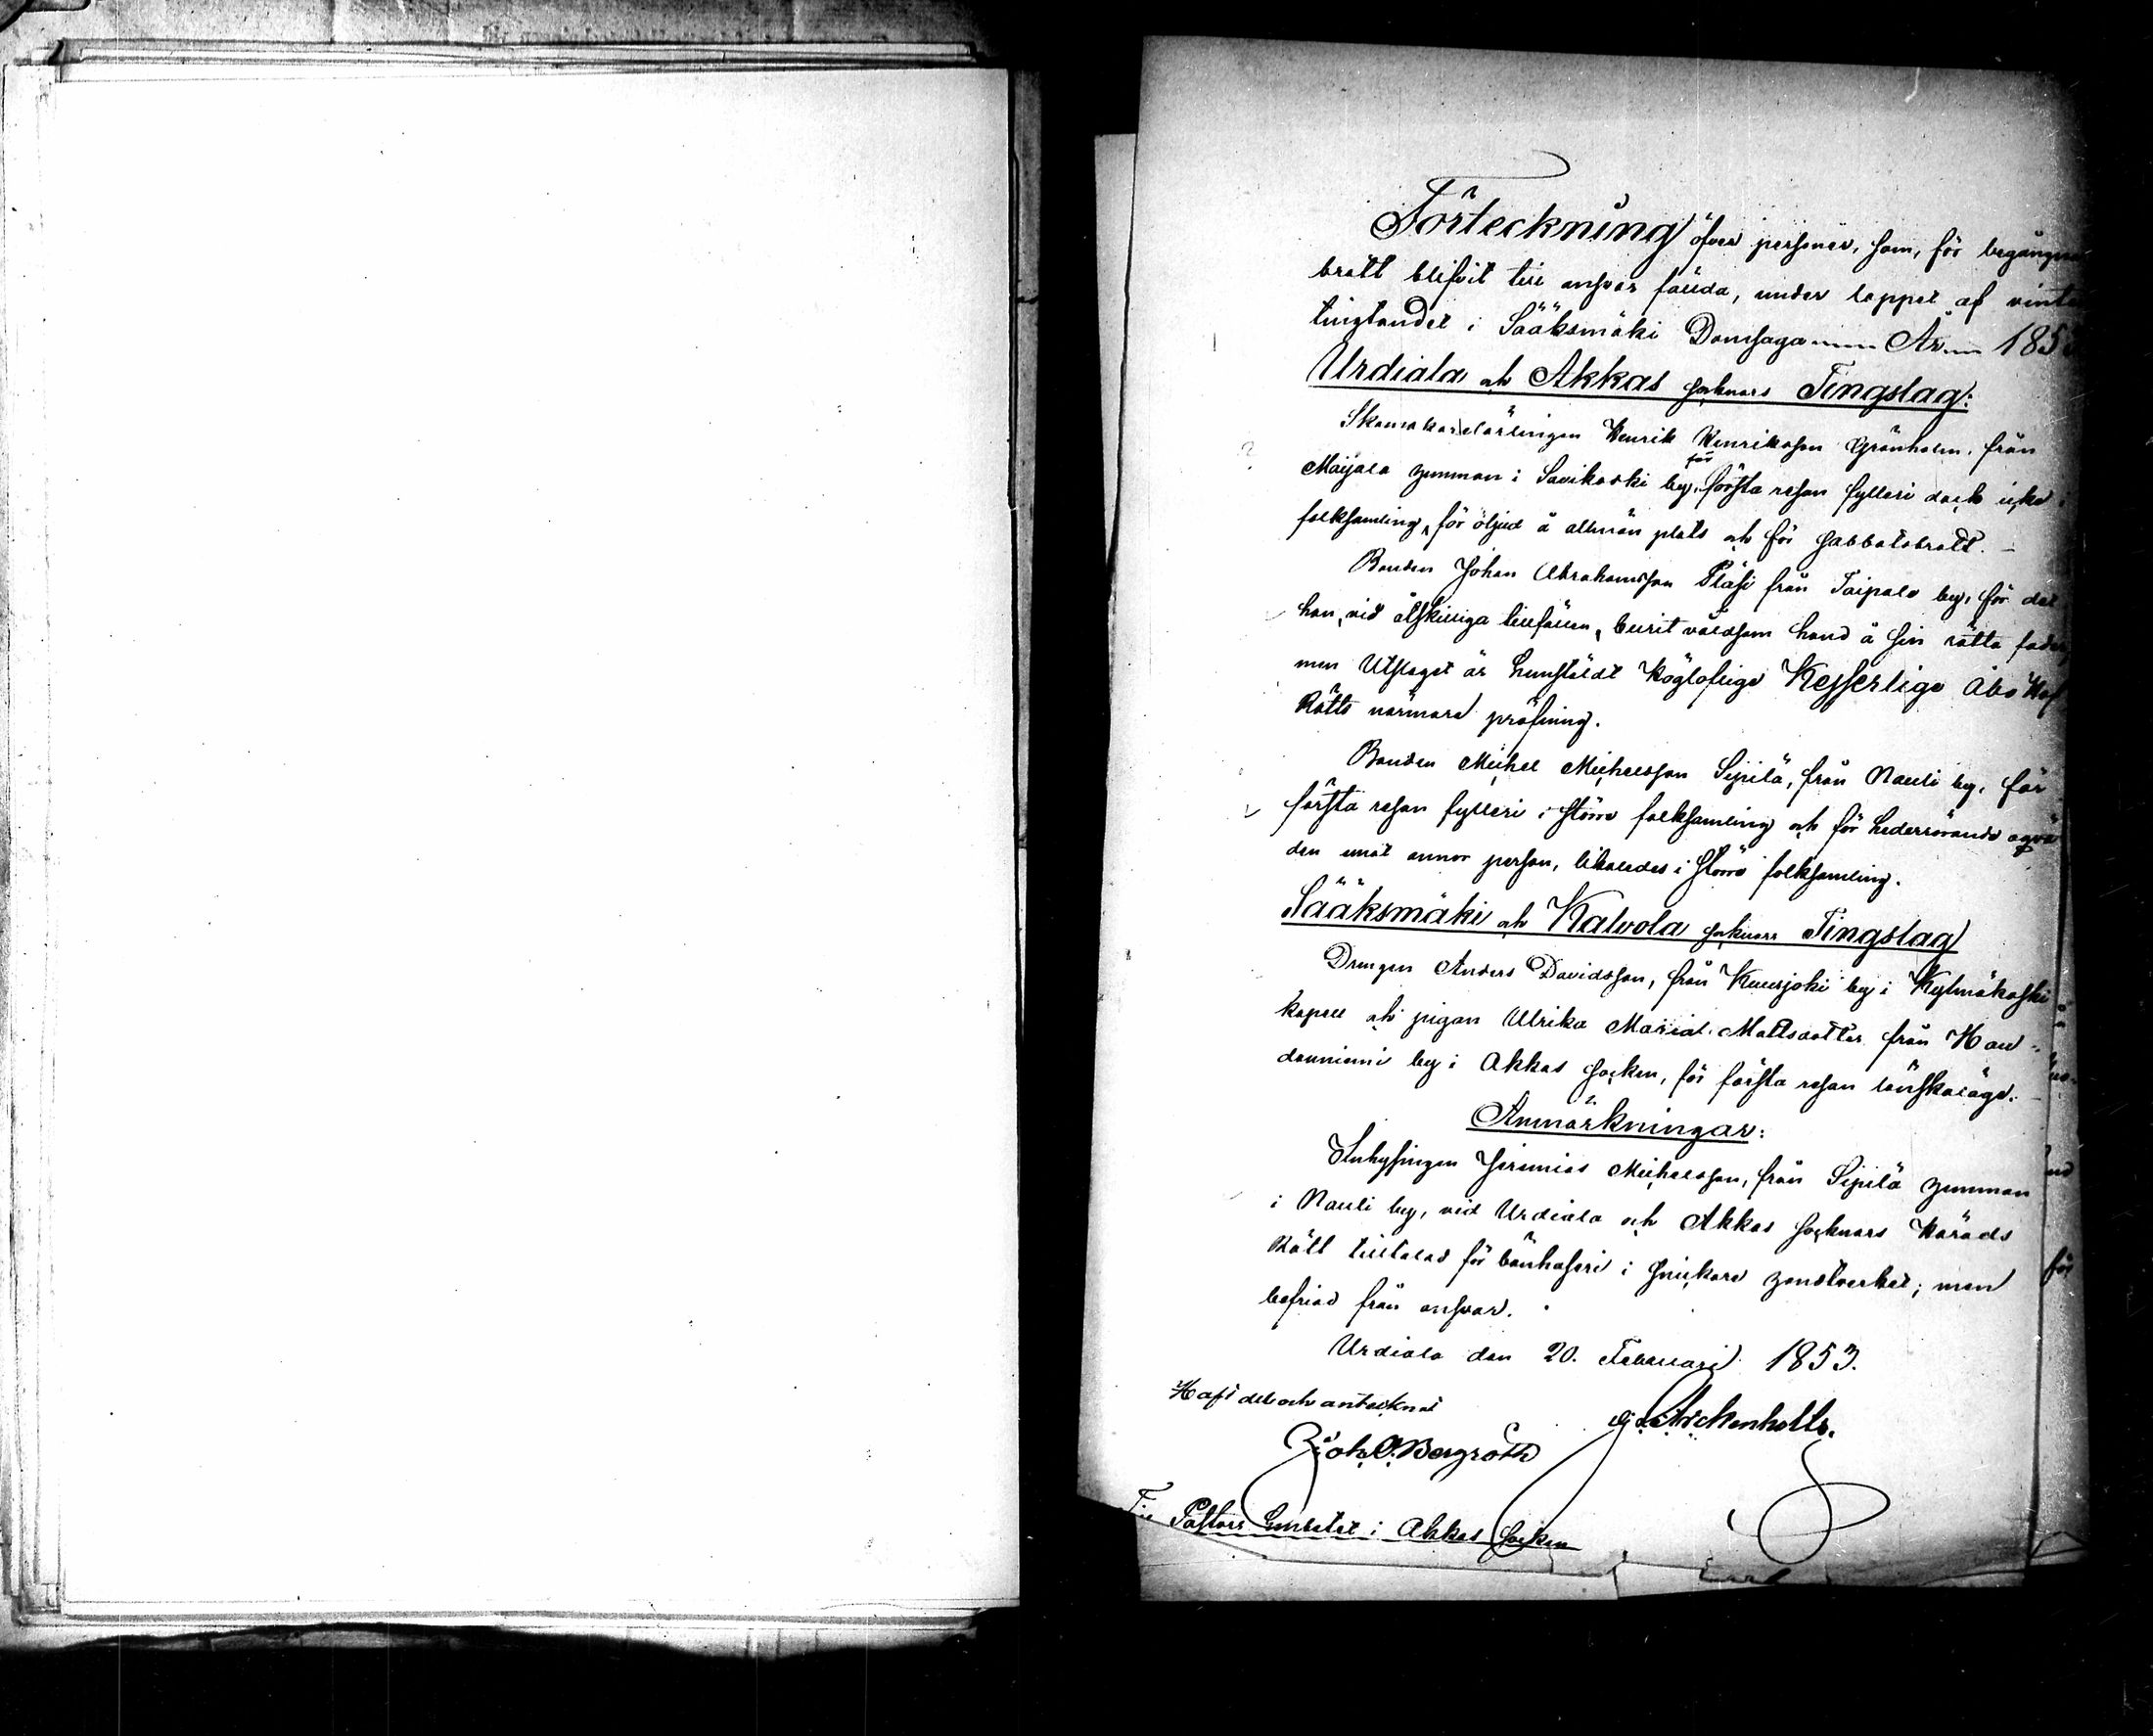 Förteckning öfver personer, som, för begångna
brott blifvit till ansvar fällda, under loppet af vinter
tingtandet i Sääksmäki Domsaga År 185
Urdiala och Akkas socknars Tingslag:
Skomakarelärlingen Henrik Henriksson Grönholm, från
för
Maijala hemman i Savikoski by, första resan fylleri dock icke i
folksamling, för oljud å allmän plats och för sabbatsbrott. –
Bonden Johan Abrahamsson Pläsi från Taipale by, för det
han, vid åtskilliga tillfällen, burit våldsam hand å sin rätta fader,
men Utslaget är hemstäldt Högloflige Kejserlige Åbo Hof
Rätts närmare pröfning.
Bonden Michel Michelsson Sipilä, från Nauli by, för
första resan fylleri i större folksamling och för hederrörande oqvä
den emot annor person, likaledes i större folksamling.
Sääksmäki och Kalvola socknars Tingslag
Drengen Anders Davidsson, från Kuurjoki by i Kylmäkoski
kapell och pigan Ulrika Maria Mattsdotter från Hau-
danniemi by i Akkas socken, för första resan lönskaläge. –
Anmärkningar:
Inhysingen Jeremias Michelsson, från Sipilä hemman
i Nauli by, vid Urdiala och Akkas socknars Härads
Rätt tilltalad för bönhaseri i snickare handtverket; men
befriad från ansvar.
Urdiala den 20. Februari 1853.
Haft del och antecknat
Arckenholtz.
Joh. O. Bergroth
Till Pastors Embetet i Akkas socken